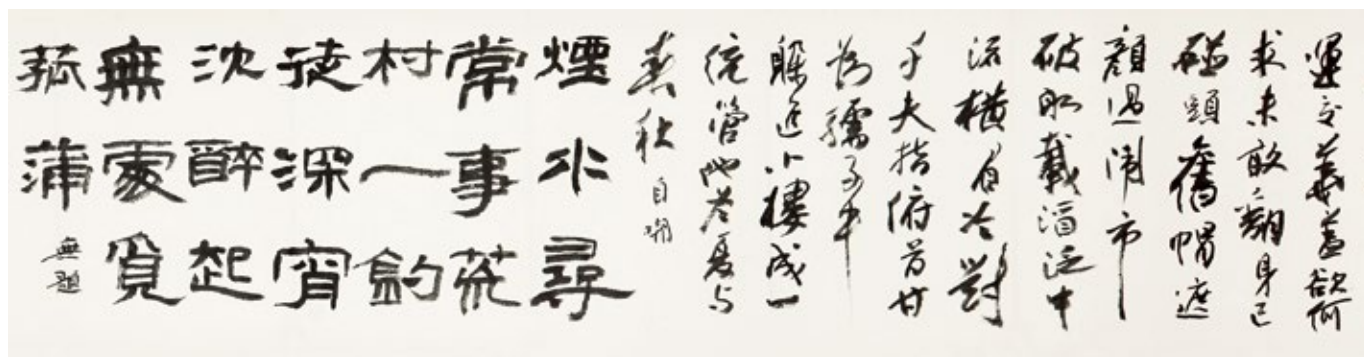 運交華蓋欲何
求未敢翻身已
碰頭舊帽遮
顏過鬧市
破船載酒泛中
流橫眉冷對
千夫指俯首甘
為孺子牛
躲進小樓成一
統管他冬夏与
春秋 自嘲
煙水尋
常事荒
村一釣
徒深宵
沈醉起
無處覓
菰蒲 無題